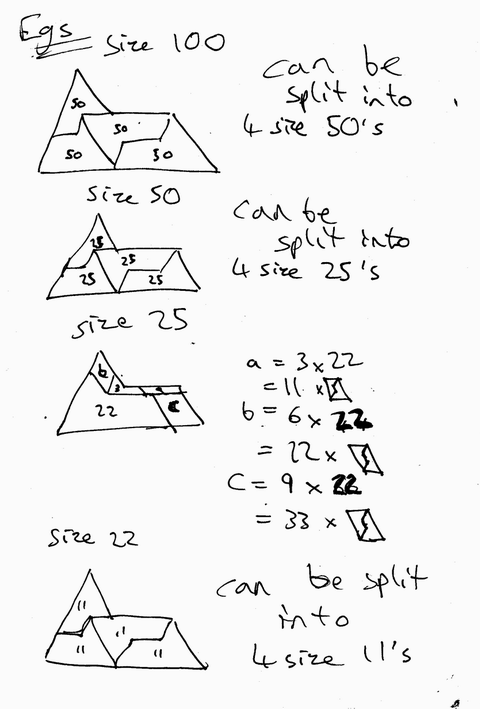 Egs
size 100
can be
split into
4 size 50's
50
50
50
50
size 50
can be
split into
4 size 25's
25
25
25
25
size 25
b
3
a
22
c
a = 3 x 22
= 11 x
b = 6 x 22
= 22 x
C = 9 x 22
= 33 x
size 22
can be split
into
4 size 11's
11
11
11
11